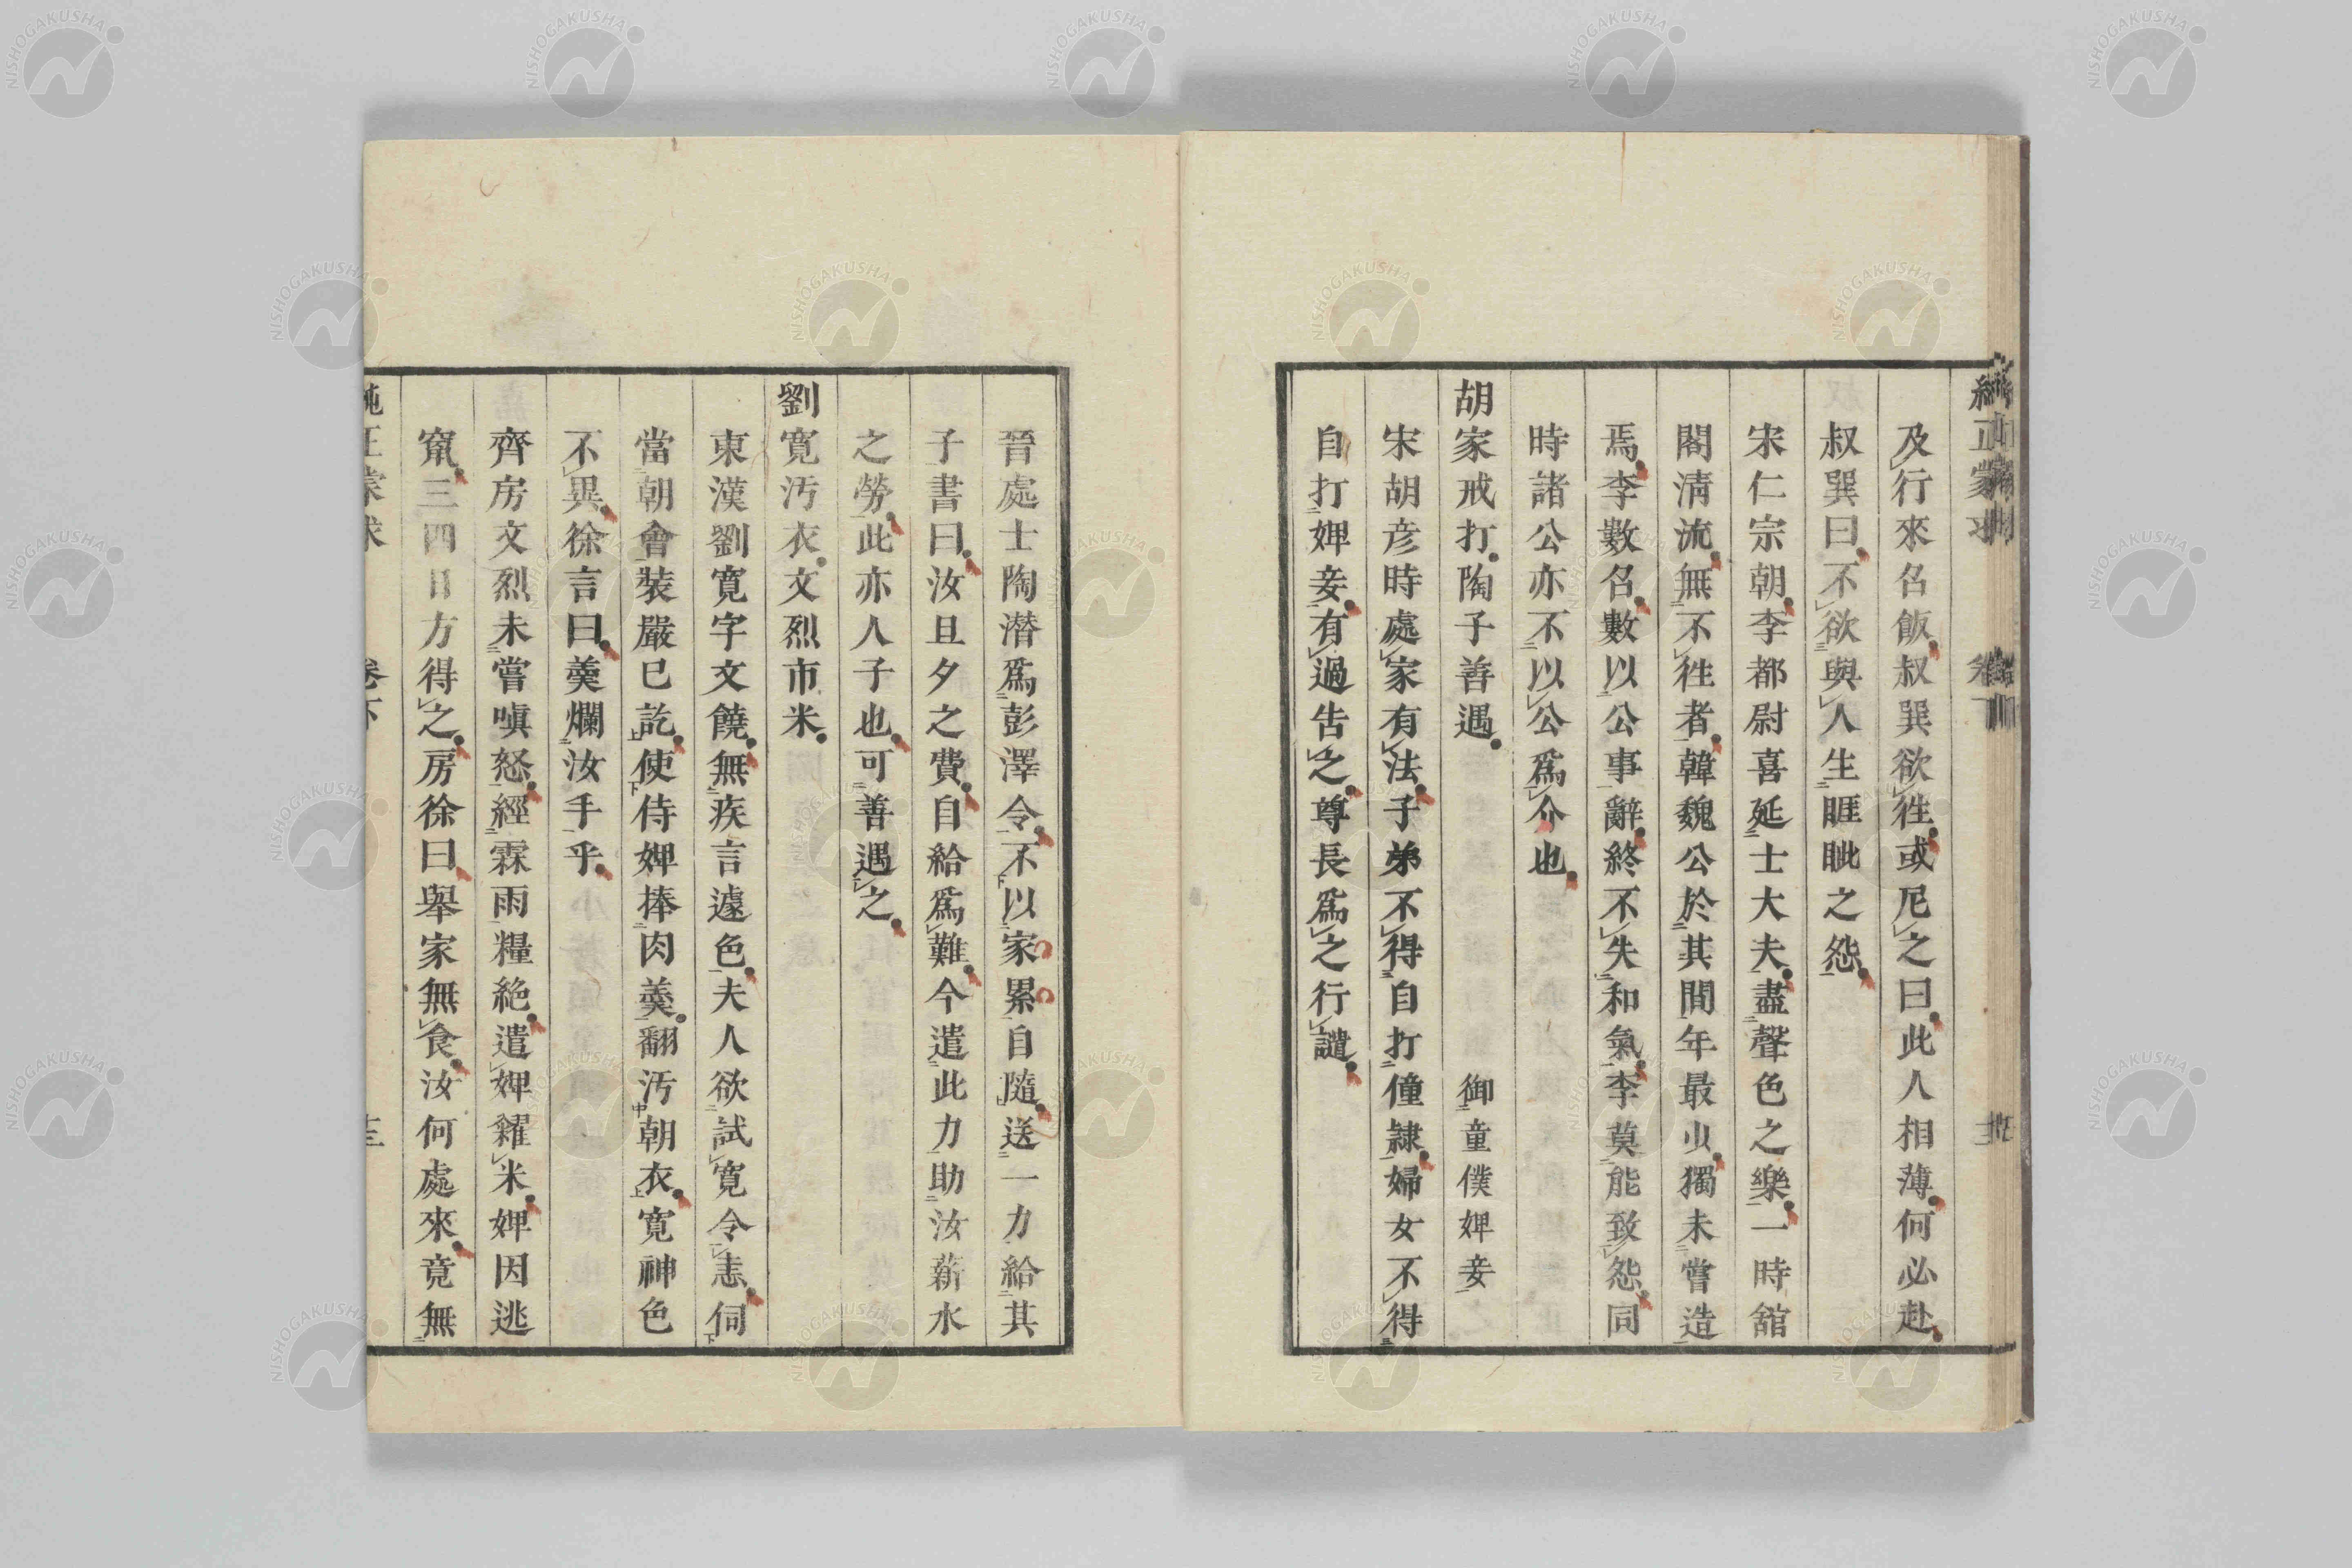 純正蒙求 卷下
及行來名飯叔巽欲徃或尼之曰此人相薄何必赴
叔巽曰不欲與人生睚眦之怨
宋仁宗朝李都尉喜延士大夫盡聲色之樂一時舘
閣淸流無不徃者韓魏公於其間年最少獨未嘗造
焉李數名數以公事辭終不失和氣李莫能致怨同
時諸公亦不以公爲介也
胡家戒打陶子善遇 御童僕婢妾
宋胡彦時處家有法子弟不得自打僮隷婦女不得
自打婢妾有過告之尊長爲之行譴
晉處士陶潛爲彭澤令不以家累自隨送一力給其
子書曰汝旦夕之費自給爲難今遣此力助汝薪水
之勞此亦人子也可善遇之
劉寛汚衣文烈市米
東漢劉寛字文饒無疾言遽色夫人欲試寛令恚伺
當朝會裝嚴已訖使侍婢捧肉羹翻汚朝衣寛神色
不異徐言曰羹爛汝手乎
齊房文烈未嘗嗔怒經霖雨糧絶遣婢糴米婢因逃
竄三四日方得之房徐曰舉家無食汝何處來竟無
純正蒙求 卷下
NISHOGAKUSHA